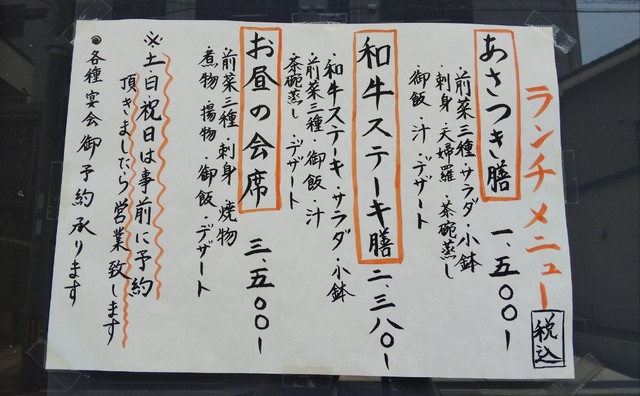 ランチメニュー
税込
あさつき膳 一、五〇〇ー
・前菜三種・サラダ・小鉢
・刺身・天婦羅・茶碗蒸し
・御飯・汁・デザート
和牛ステーキ膳 二、三八〇ー
・和牛ステーキ・サラダ・小鉢
・前菜三種・御飯・汁
・茶碗蒸し・デザート
お昼の会席 三、五〇〇ー
前菜三種・刺身・焼物
煮物・揚物・御飯・デザート
※土・日・祝日は事前に予約
頂きましたら営業致します
●各種宴会御予約承ります